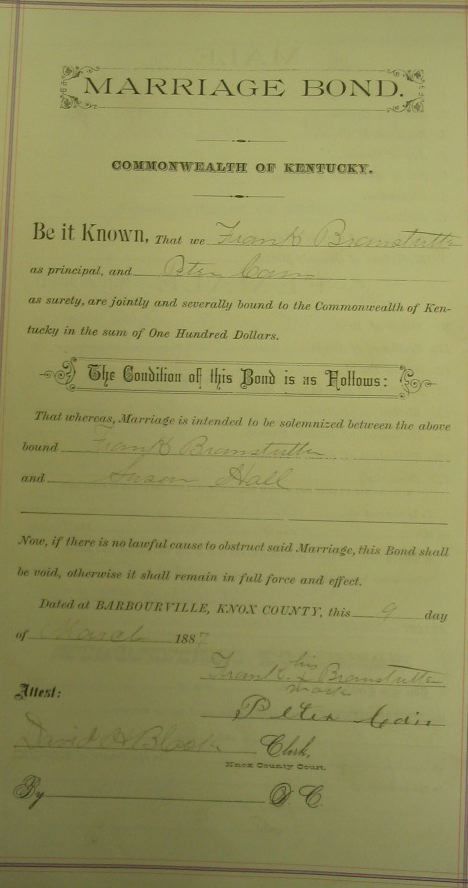 MARRIAGE BOND.
COMMONWEALTH OF KENTUCKY.
Be it Known, That we Frank Branstutter
as principal, and Peter Cain
as surety, are jointly and severally bound to the Commonwealth of Ken-
tucky in the sum of One Hundred Dollars.
The Condition of this Bond is as Follows:
That whereas, Marriage is intended to be solemnized between the above
bound Frank Branstutter
and Susan Hall
Now, if there is no lawful cause to obstruct said Marriage, this Bond shall
be void, otherwise it shall remain in full force and effect.
Dated at BARBOURVILLE, KNOX COUNTY, this 9 day
of March 1887
his
Frank x Branstutter
mark
Attest:
Peter Cain
David Clerk,
Knox County Court.
By D. C.